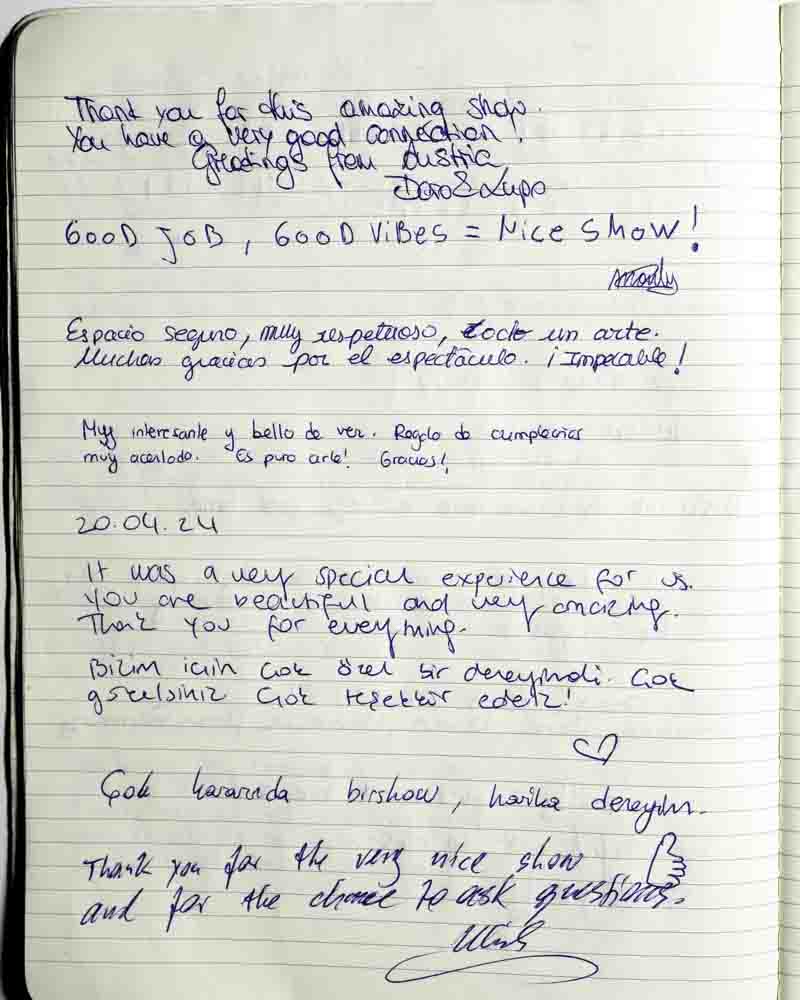 Thank you for this amazing show.
You have a very good connection!
Greetings from Austria
Doro & Lupo
GOOD JOB, GOOD ViBES = Nice SHOW!
Espacio seguro, muy respetuoso, todo un arte.
Muchas gracias por el espectáculo. ¡Impecable!
Muy interesante y bello de ver. Regalo de cumpleaños
muy acertado. Es puro arte! Gracias!
20.04.24
It was a very special experience for us.
You are beautiful and very amazing.
Thank you for everything.
Bizim için çok özel bir deneyimdi. Çok
güzelsiniz Çok teşekkür ederiz!
Çok kararında birshow, harika deneyim.
Thank you for the very nice show
and for the chance to ask questions.